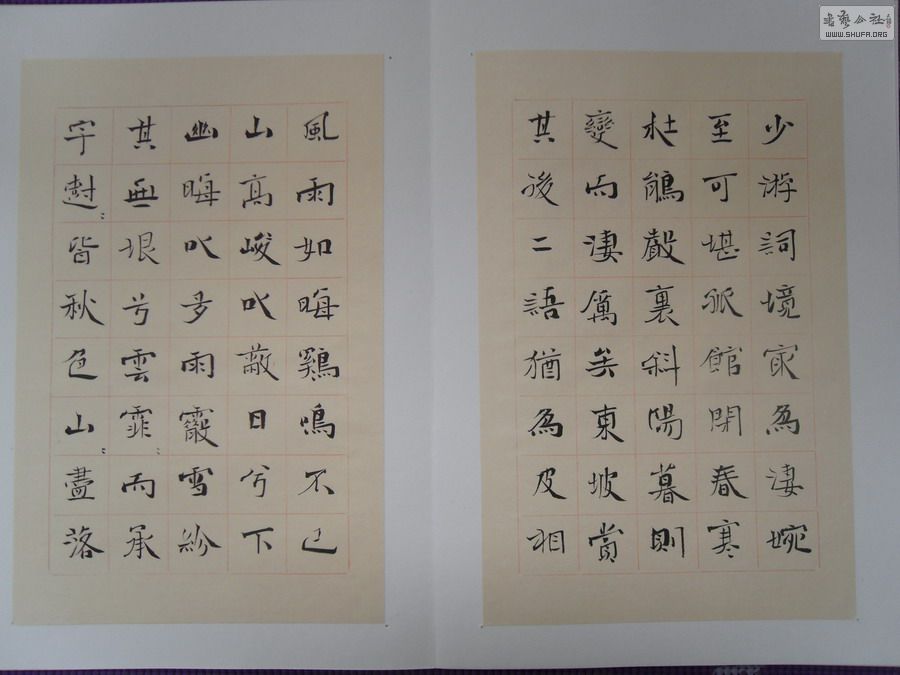 少游詞境冣為淒婉
至可堪孤館閉春寒
杜鵑聲裏斜陽暮則
變而淒厲矣東坡賞
其後二語猶為皮相
風雨如晦鷄鳴不已
山高峻以蔽日兮下
幽晦以多雨霰雪紛
其無垠兮雲霏〻而承
宇尌〻皆秋色山〻盡落
書藝公社
WWW.SHUFA.ORG